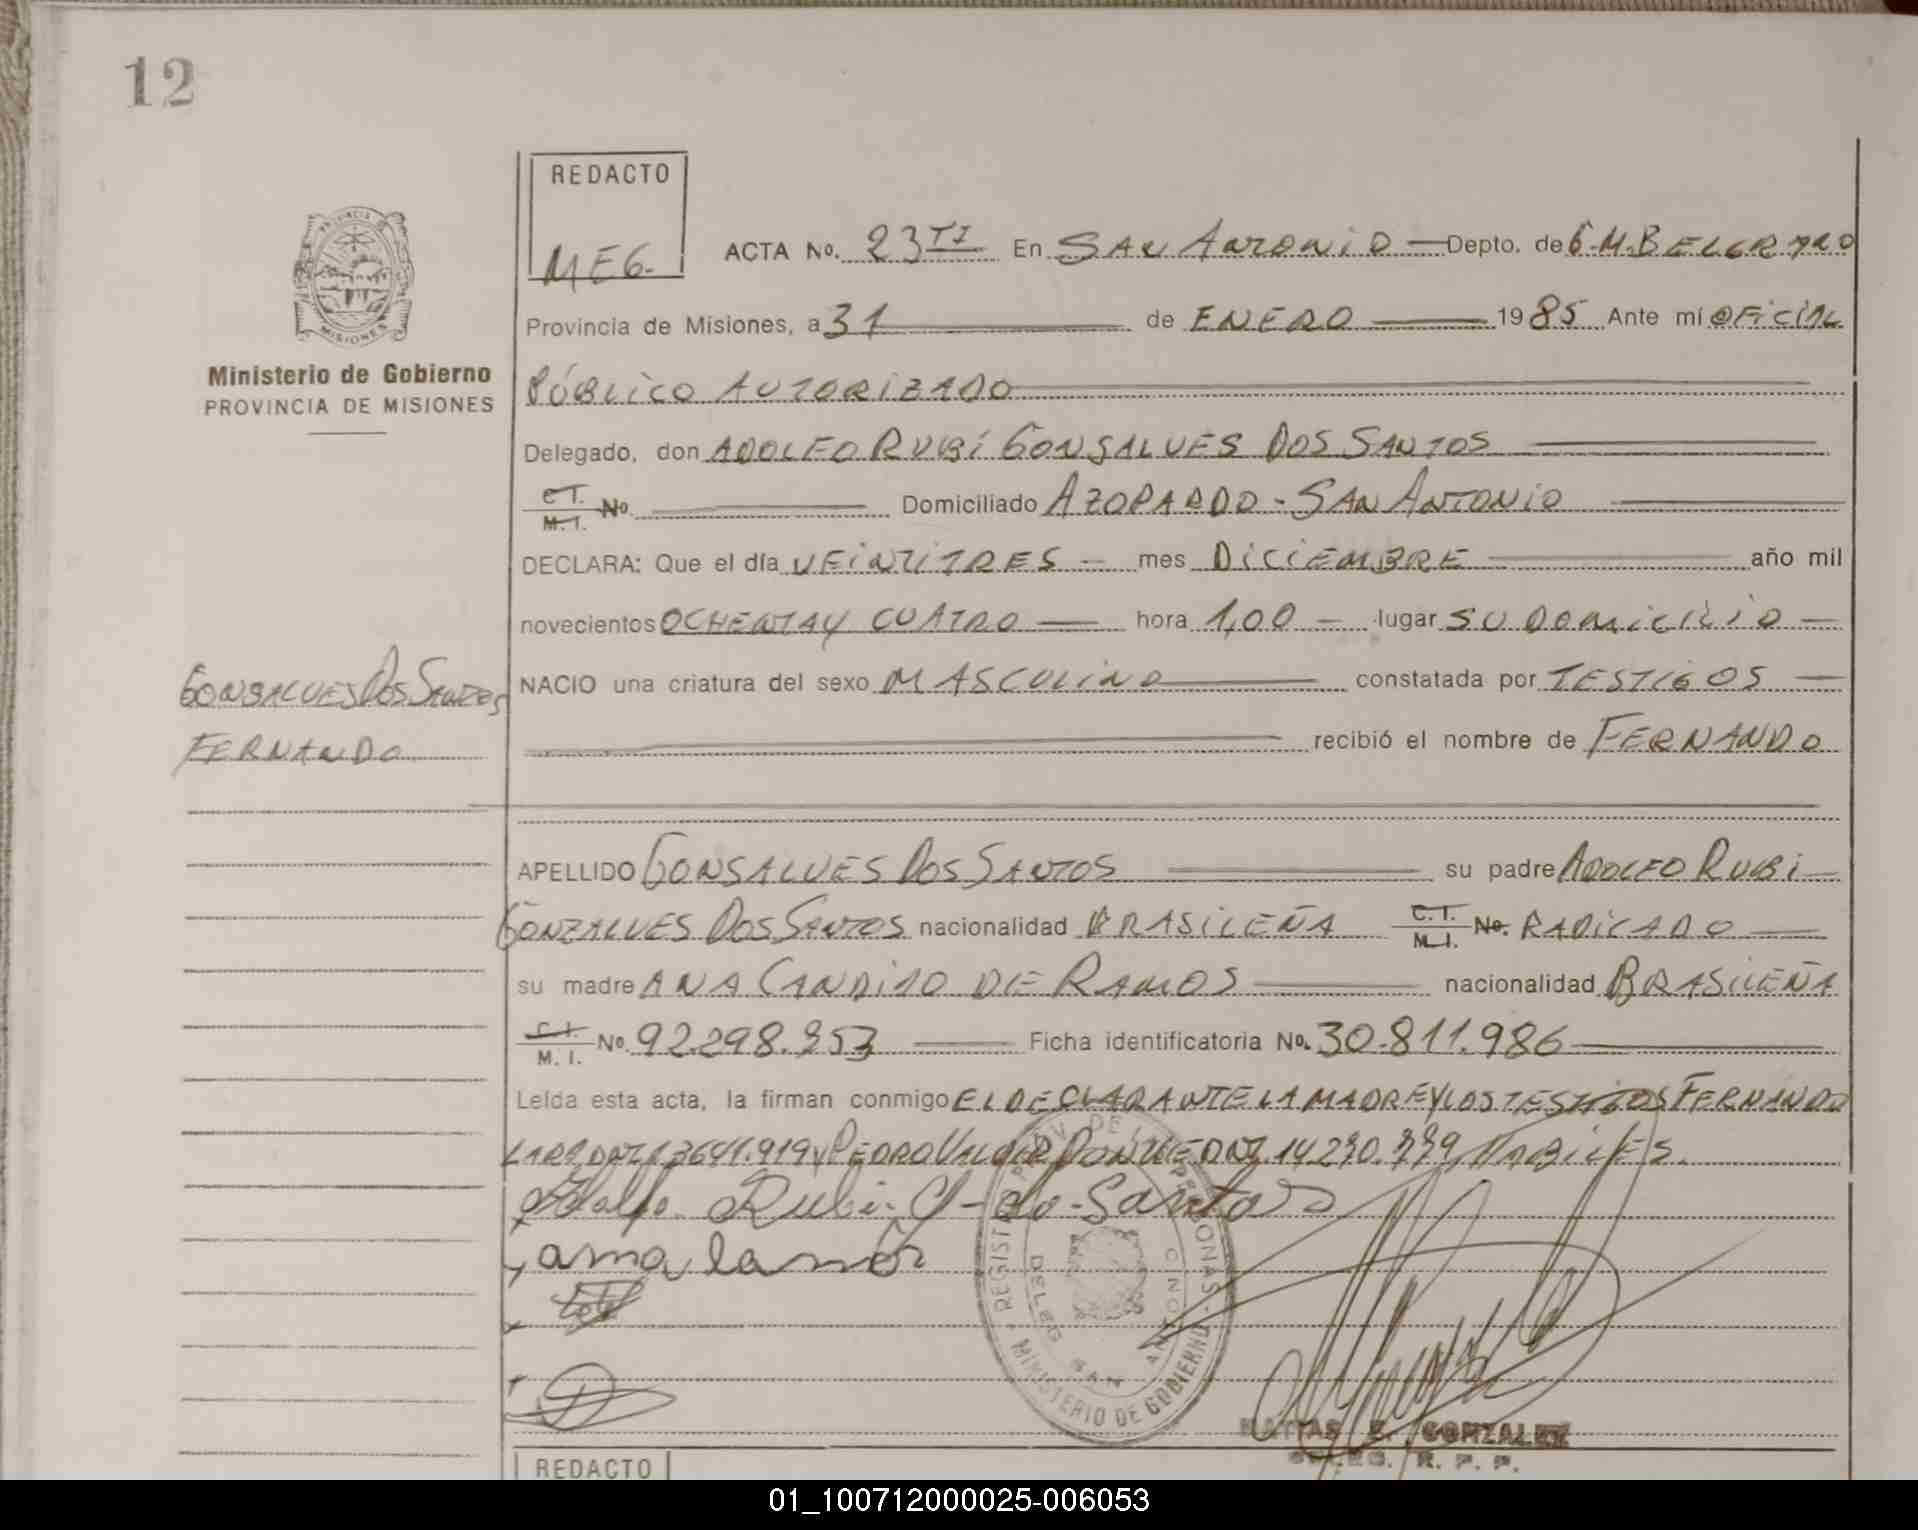 12
REDACTO
MEG.
ACTA No. 23 TI En SAN ANTONIO Depto. de G.M.BELGRANO
Provincia de Misiones, a 31 de ENERO 1985 Ante mí OFICIAL
PÚBLICO AUTORIZADO
PROVINCIA DE
MISIONES
Ministerio de Gobierno
PROVINCIA DE MISIONES
Delegado, don ADOLFO RUBI GONSALVES DOS SANTOS
C.I. M.I. No. Domiciliado AZOPARDO - SAN ANTONIO
DECLARA: Que el día VEINTITRES mes DICIEMBRE año mil
novecientos OCHENTAY CUATRO hora 1,00 lugar SU DOMICILIO
NACIO una criatura del sexo MASCULINO constatada por TESTIGOS
recibió el nombre de FERNANDO
GONSALVES DOS SANTOS
FERNANDO
APELLIDO GONSALVES DOS SANTOS su padre ADOLFO RUBI
GONZALVES DOS SANTOS nacionalidad BRASILEÑA C.I. M.I. No. RADICADO
su madre ANA CANDIDO DE RAMOS nacionalidad BRASILEÑA
C.I. M.I. No. 92.298.353 Ficha identificatoria No. 30.811.986
Leída esta acta, la firman conmigo EL DECLARANTE LA MADRE Y LOS TESTIGOS FERNANDO
LARA DNI 13641.919 y PEDRO VALDIR DNI 14.290. HABILES.
Adolfo Rubi G do Santos
ana
REGISTRO PROV. DE LAS PERSONAS
MINISTERIO DE GOBIERNO
DELEG. SAN ANTONIO
MATIAS E. GONZALEZ
DELEG. R. P. P.
REDACTO
01_100712000025-006053